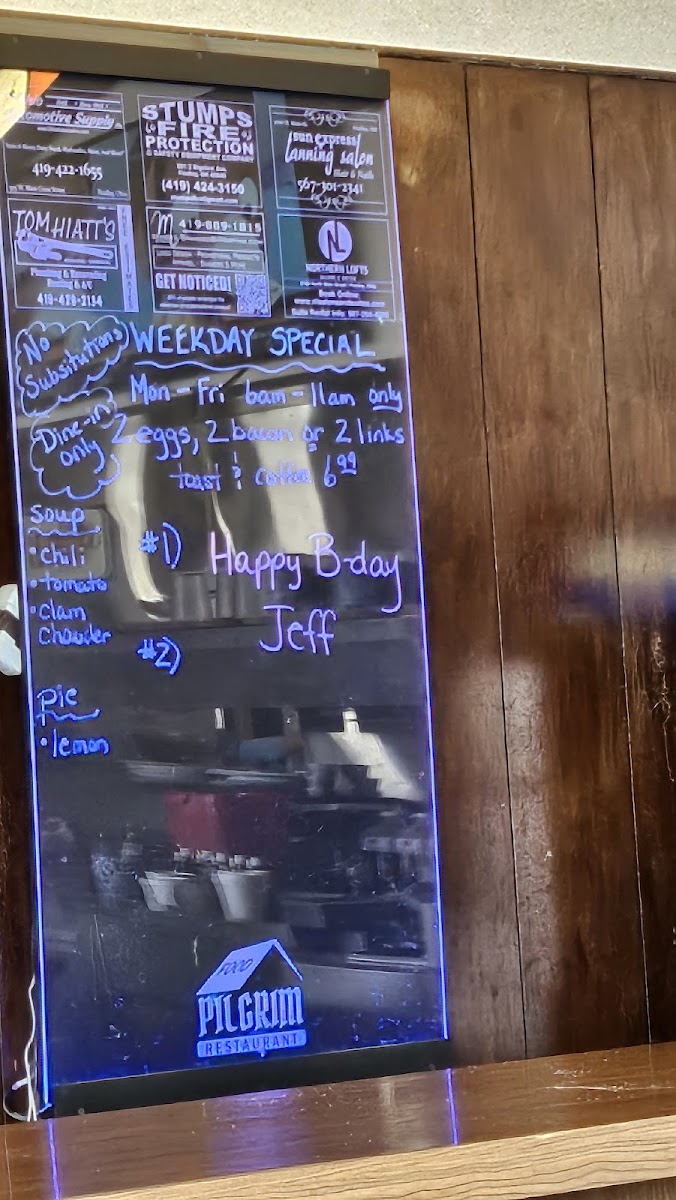 omotive Supply
419-422-1655
STUMPS
FIRE
PROTECTION
& SAFETY EQUIPMENT COMPANY
(419) 424-3150
Sun Express
Tanning Salon
Hair & Nails
567-301-2341
TOM HIATT'S
FREE ESTIMATES
Plumbing & Excavating
Heating & A/C
419-479-2154
m
GET NOTICED!
NL
NORTHERN LOFTS
Book Online:
No
Subsitutions
WEEKDAY SPECIAL
Mon - Fri 6am - 11am only
Dine-in
only
2 eggs, 2 bacon or 2 links
toast & coffee 6.99
Soup
• chili
• tomato
• clam
chowder
#1)
Happy B-day
Jeff
#2)
Pie
• lemon
FOOD
PILGRIM
RESTAURANT